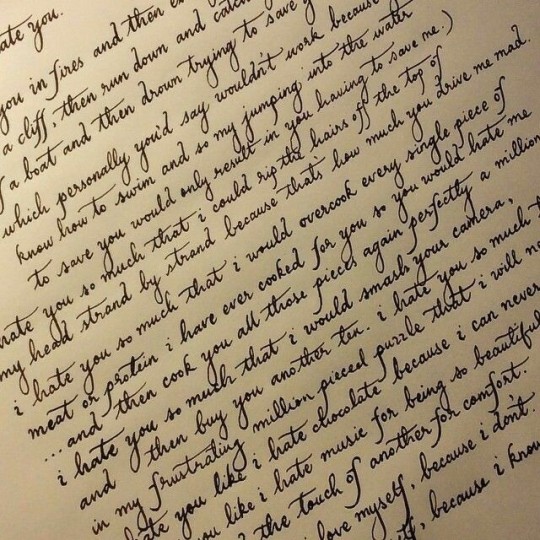 ate you.
you in fires and then ex
a cliff, then run down and catch
f a boat and then drown trying to save y
which personally you'd say wouldn't work because
know how to swim and so my jumping into the water
to save you would only result in you having to save me.)
hate you so much that i could rip the hairs off the top of
my head strand by strand because that's how much you drive me mad.
i hate you so much that i would overcook every single piece of
meat or protein i have ever cooked for you so you would hate me
... and then cook you all those pieces again perfectly a million
i hate you so much that i would smash your camera,
and then buy you another ten. i hate you so much t
in my frustrating million pieced puzzle that i will ne
hate you like i hate chocolate because i can never
you like i hate music for being so beautiful
d the touch of another for comfort.
love myself, because i don't.
self, because i know